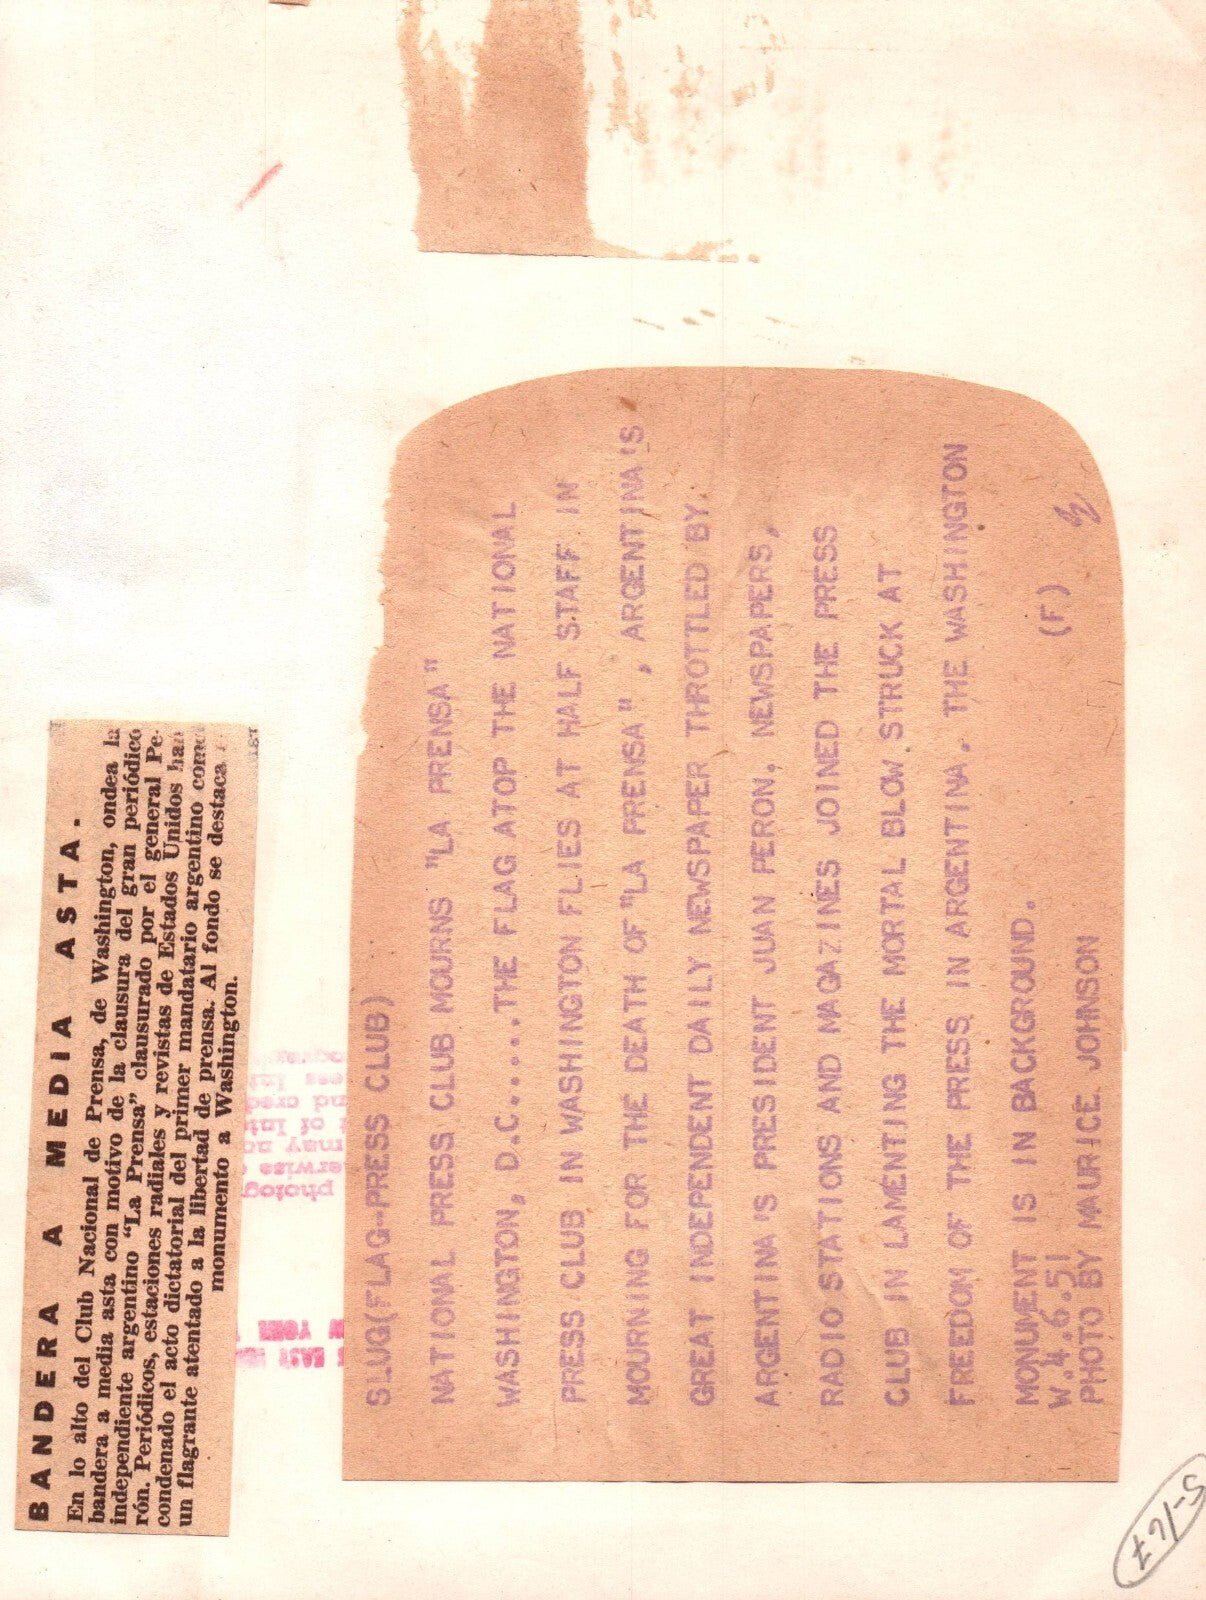 BANDERA A MEDIA ASTA.
En lo alto del Club Nacional de Prensa, de Washington, ondea la
bandera a media asta con motivo de la clausura del gran periódico
independiente argentino "La Prensa" clausurado por el general Pe-
rón. Periódicos, estaciones radiales y revistas de Estados Unidos han
condenado el acto dictatorial del primer mandatario argentino como
un flagrante atentado a la libertad de prensa. Al fondo se destaca
monumento a Washington.
SLUG(FLAG-PRESS CLUB)
NATIONAL PRESS CLUB MOURNS "LA PRENSA"
WASHINGTON, D.C.....THE FLAG ATOP THE NATIONAL
PRESS CLUB IN WASHINGTON FLIES AT HALF STAFF IN
MOURNING FOR THE DEATH OF "LA PRENSA", ARGENTINA'S
GREAT INDEPENDENT DAILY NEWSPAPER THROTTLED BY
ARGENTINA'S PRESIDENT JUAN PERON. NEWSPAPERS,
RADIO STATIONS AND MAGAZINES JOINED THE PRESS
CLUB IN LAMENTING THE MORTAL BLOW STRUCK AT
FREEDOM OF THE PRESS IN ARGENTINA. THE WASHINGTON
MONUMENT IS IN BACKGROUND.
W.4.6.51 (F)
PHOTO BY MAURICE JOHNSON
photog
erwise
may no
of Int
nd cred
ess Int
EAST
W YORK
S-167